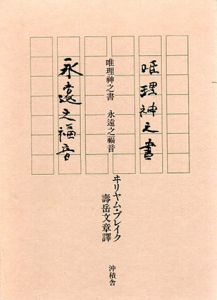 唯理神之書
永遠之福音
唯理神之書 永遠之福音
ヰリヤム・ブレイク
壽岳文章譯
沖積舎